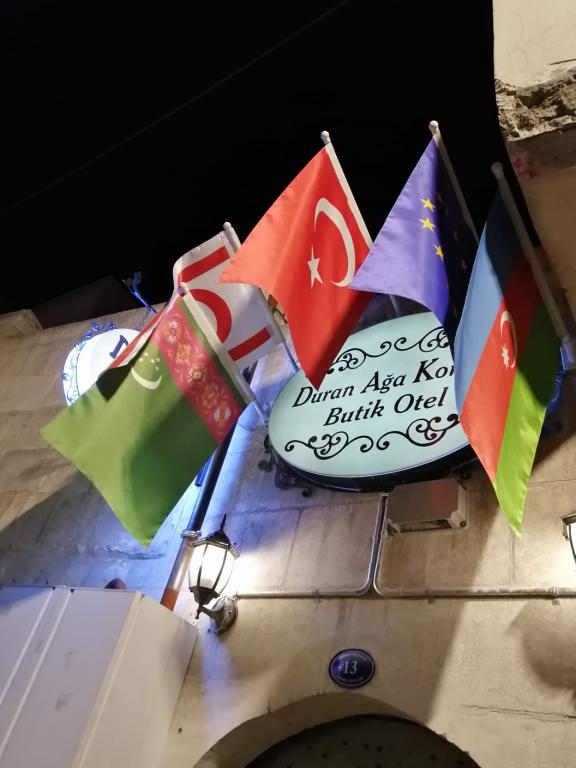 Duran Ağa
Butik Otel
13